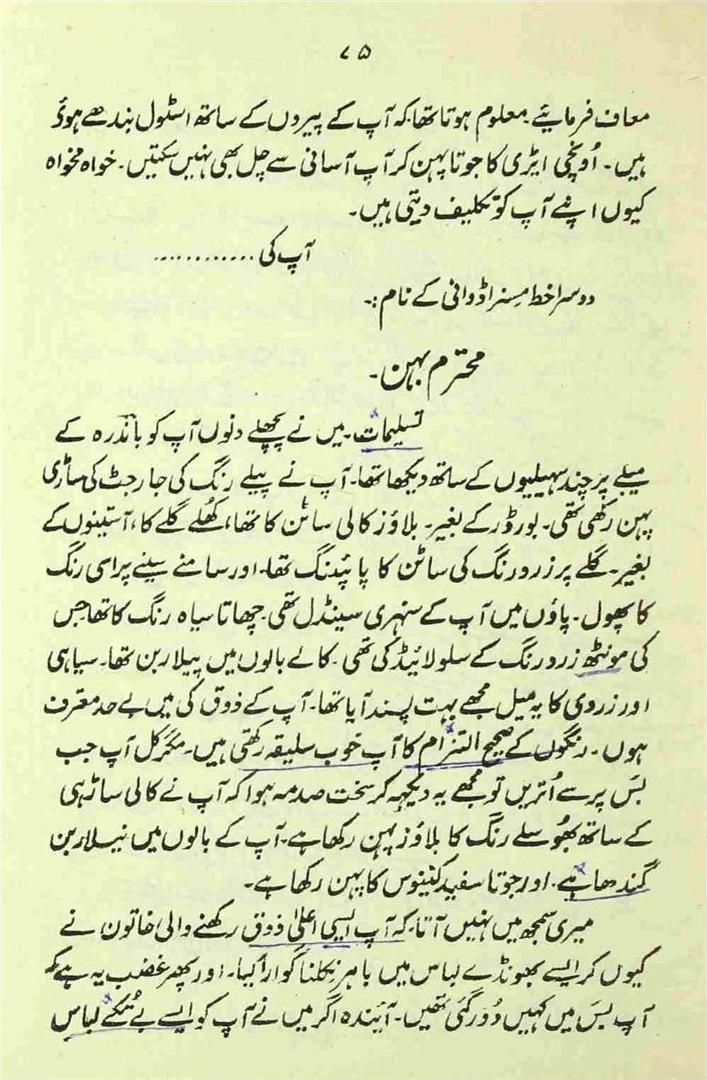 ۷۵
معاف فرمایئے۔ معلوم ہوتا تھا کہ آپ کے پیروں کے ساتھ اسٹول بندھے ہوئے
ہیں۔ اُونچی ایڑی کا جوتا پہن کر آپ آسانی سے چل بھی نہیں سکتیں۔ خواہ مخواہ
کیوں اپنے آپ کو تکلیف دیتی ہیں۔
آپ کی ............
دوسرا خط مسنر اڈوانی کے نام :۔
محترم بہن۔
تسلیمات۔ میں نے پچھلے دنوں آپ کو باندرہ کے
میلے پر چند سہیلیوں کے ساتھ دیکھا تھا۔ آپ نے پیلے رنگ کی جارجٹ کی ساڑی
پہن رکھی تھی۔ بورڈر کے بغیر۔ بلاؤز کالی ساٹن کا تھا، کھُلے گلے کا، آستینوں کے
بغیر۔ گلے پر زرد رنگ کی ساٹن کا پائپدنگ تھا۔ اور سامنے سینے پر اسی رنگ
کا پھول۔ پاؤں میں آپ کے سنہری سینڈل تھی۔ چھاتا سیاہ رنگ کا تھا جس
کی مونٹھ زرد رنگ کے سلولائیڈ کی تھی۔ کالے بالوں میں پیلا ربن تھا۔ سیاہی
اور زردی کا یہ میل مجھے بہت پسند آیا تھا۔ آپ کے ذوق کی میں بے حد معترف
ہوں۔ رنگوں کے صحیح التزام کا آپ خوب سلیقہ رکھتی ہیں۔ مگر کل آپ جب
بس پر سے اُتریں تو مجھے یہ دیکھ کر سخت صدمہ ہوا کہ آپ نے کالی ساڑہی
کے ساتھ بھوسلے رنگ کا بلاؤز پہن رکھا ہے۔ آپ کے بالوں میں نیلا ربن
گندھا ہے۔ اور جوتا سفید کینوس کا پہن رکھا ہے۔
میری سمجھ میں نہیں آتا۔ کہ آپ ایسی اعلیٰ ذوق رکھنے والی خاتون نے
کیوں کر ایسے بھونڈے لباس میں باہر نکلنا گوارا کیا۔ اور پھر غضب یہ ہے کہ
آپ بس میں کہیں دُور گئی تھیں۔ آئندہ اگر میں نے آپ کو ایسے بے تُکے لباس